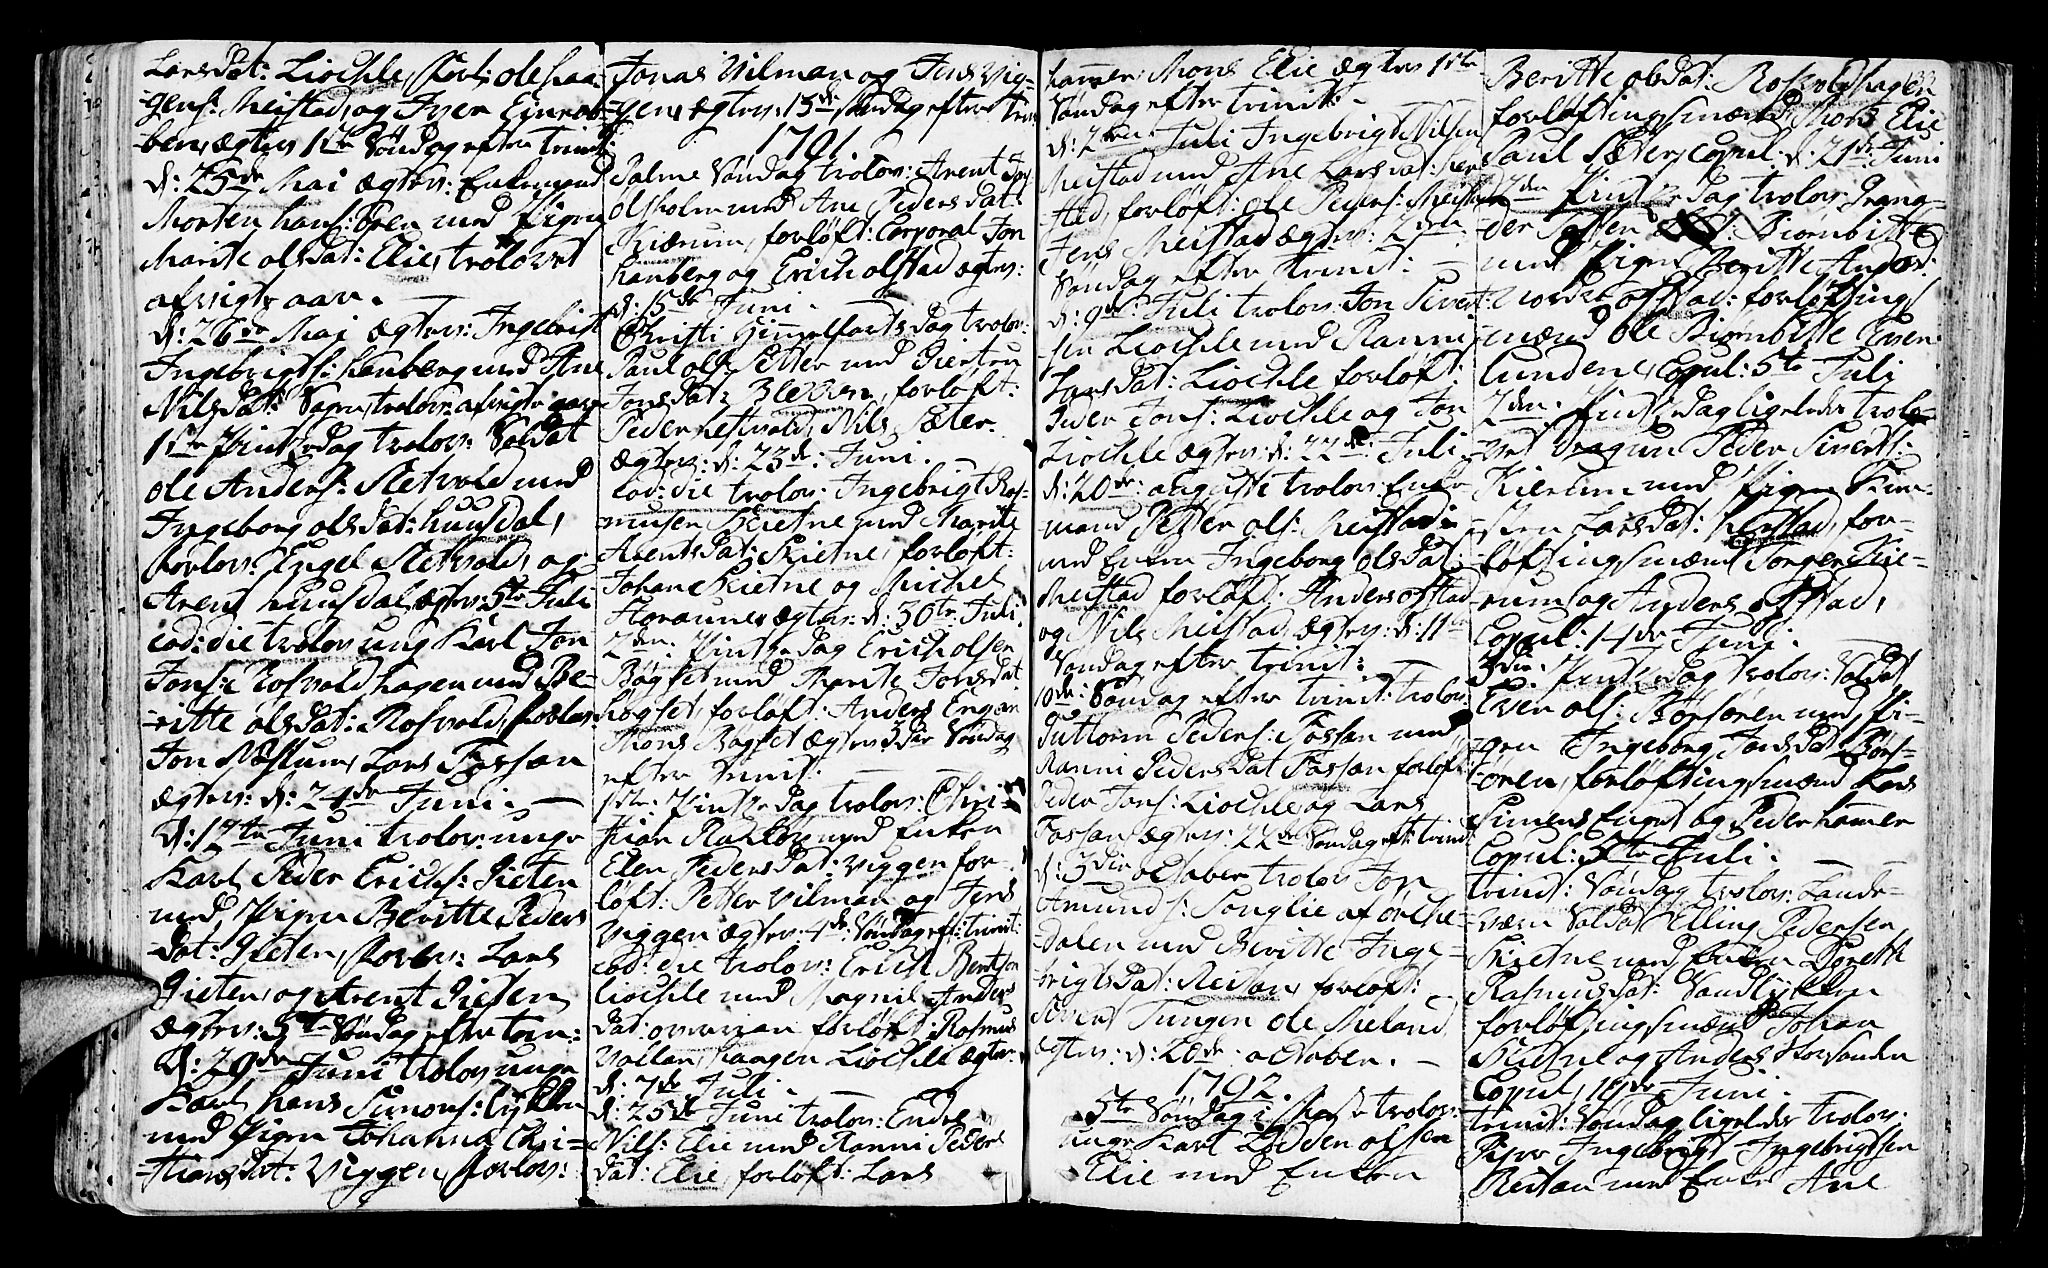 Larsdat: Liøchle, forl: ole haa-
gens: Meistad, og Iver Einræb-
ben, ægtev: 1ste Søndag efter trinit:
d: 25de Mai ægtev: Enkemand
Morten hans: Øren med Pigen
Marite olsdat: Elie, trolovet
afvigte aar. —
d: 26de Mai ægtev: Ingebrigt
Ingebrigts: hanberg med Ane
Nilsdat: trolov: afvigte aar
1ste Pintzdag trolov: Soldat
ole Anders: Retvold med
Ingeborg olsdat: huusdal,
forlov: Engel Retvold, og
Arent huusdal, ægtev: 5te Juli
eod: die trolov: ung Karl Jon
Jons: Rosvoldhagen med Be-
ritte olsdat: Rosvold, forlov:
Jon Næstum, Lars Fossan
ægtev: d: 24de Juni. —
d: 17te Juni trolov: unge
Karl Peder Erichs: Gieten
med Pigen Beritte Peders
dat: Gieten, forlov: Lars
Gieten, og Arent Gieten
ægtev: 5te Søndag efter trin:
d: 29de Juni trolov: unge
Karl hans Simons: Lykken
med Pigen Johanna Chri-
stiansdat: Viggen, forlov:
Jonas Vilman og Jens Vig-
gen, ægtev: 15de Søndag efter trin:
1791
Palme Søndag trolov: Arent Jon
olsholm med Ane Pedersdat:
Kiærum, forløft: Corporal Jon
hanberg og Erich olstad ægtev:
d: 15de Juni.
Christi Himmelfartsdag trolov:
Paul ols: Sætter med Giertru
Jonsdat: Bleken, forløft:
Peder Nils Sæter.
ægtev: d: 23de: Juni. —
eod: die trolov: Ingebrigt Ras-
musen Skietne med Marite
Arentsdat: Skietne, forløft:
Johan Skietne og Michel
ægtev: d: 30te Juli
2den: Pintzdag Erich olsen
Bøgset med Marite Jonsdat:
høgset, forløft: Anders Engan
Mons Bøgset ægtev: 3die Søndag
efter Trinit. —
1ste: Pintzdag trolov: Chri-
stian med Enken
Elen Pedersdat: Viggen for-
løft: Petter Vilman og Jens
Viggen ægtev: 4de: Søndag eft: trinit:
eod: die trolov: Erich Bentson
Liochle med Magnil Anders
dat: forløft: Rasmus
Vollan, haagen Liochle ægtev:
d: 7de Juli. —
d: 25de Juni trolov: Endre
Nils: Elie med Ranni Peders
dat: Elie, forløft: Lars
hammer, Mons Elie ægtev 1ste
Søndag efter trinit: —
d: 2den: Juli Ingebrigt Nilsen
Meistad med Ane Larsdat: her
stad, forløft: ole Peders: Meistad
Jens Meistad ægtev: 2den
Søndag efter trinit: —
d: 9de: Juli trolov: Jon Sivert-
sen Liochle med Ranni
Larsdat: Liochle forløft:
Peder Jons: Liochle og Jon
Liochle ægtev: d: 22de: Juli
d: 20de: augusti trolov: Enke-
mand Petter ols: Meistad
med Enken Ingeborg olsdat:
Meistad forløft: Anders olstad
og Nils Meistad ægtev: d: 11te
Søndag efter trinit: —
10de: Søndag efter trinit: trolov:
Guttorm Peders: Fossan med
Ranni Pedersdat Fossan forløft:
Peder Jons: Liochle og Lars
Fossan ægtev: 22de Søndag eft: trinit
d: 3die october trolov Jon
Amunds: Songlie af ørche-
dalen med Beritte Inge-
brigtsdat: Reitan, forløft:
Sivert Tungen ole Meland
ægtev: d: 20de: october. —
1792.
5te Søndag i trolov:
unge Karl olsen
Elie med Enken
Beritte olsdat: Rosvoldhagen
forløftingsmænd Mons Elie
Paul Sæter, Copul: d: 21de: Juni
2den Pintzdag trolov: Grena-
der Petter Biørnbitte
med Pigen Beritte Anders
dat: olstad: forløftings
mænd ole Biørnbitte Even
lunden, Copul: 5te Juli
2den: Pintzdag ligeledes trolo-
vet Dragun Peder Siverts:
Kierum med Pigen Kier-
sten Larsdat: herstad, for-
løftingsmænd Torger Kie-
rum og Anders olstad,
Copul: 14de Juni.
3die: Pintzdag trolov: Soldat
Even ols: Børsøren med Pi-
gen Ingeborg Jonsdat Børs-
øren, forløftingsmænd Lars
Simens: og Peder hamer
Copul: 5te Juli. —
trinit: Søndag trolov: Lande-
værn Soldat Elling Pedersen
Skietne med Enken Dorette
Rasmusdat: Sandlykken
forløftingsmænd Johan
Skietne og Anders
Copul, 18de Juni.
trinit: Søndag ligeledes trolov:
Ingebrigt Ingebrigtsen
Reitan med Enke Ane